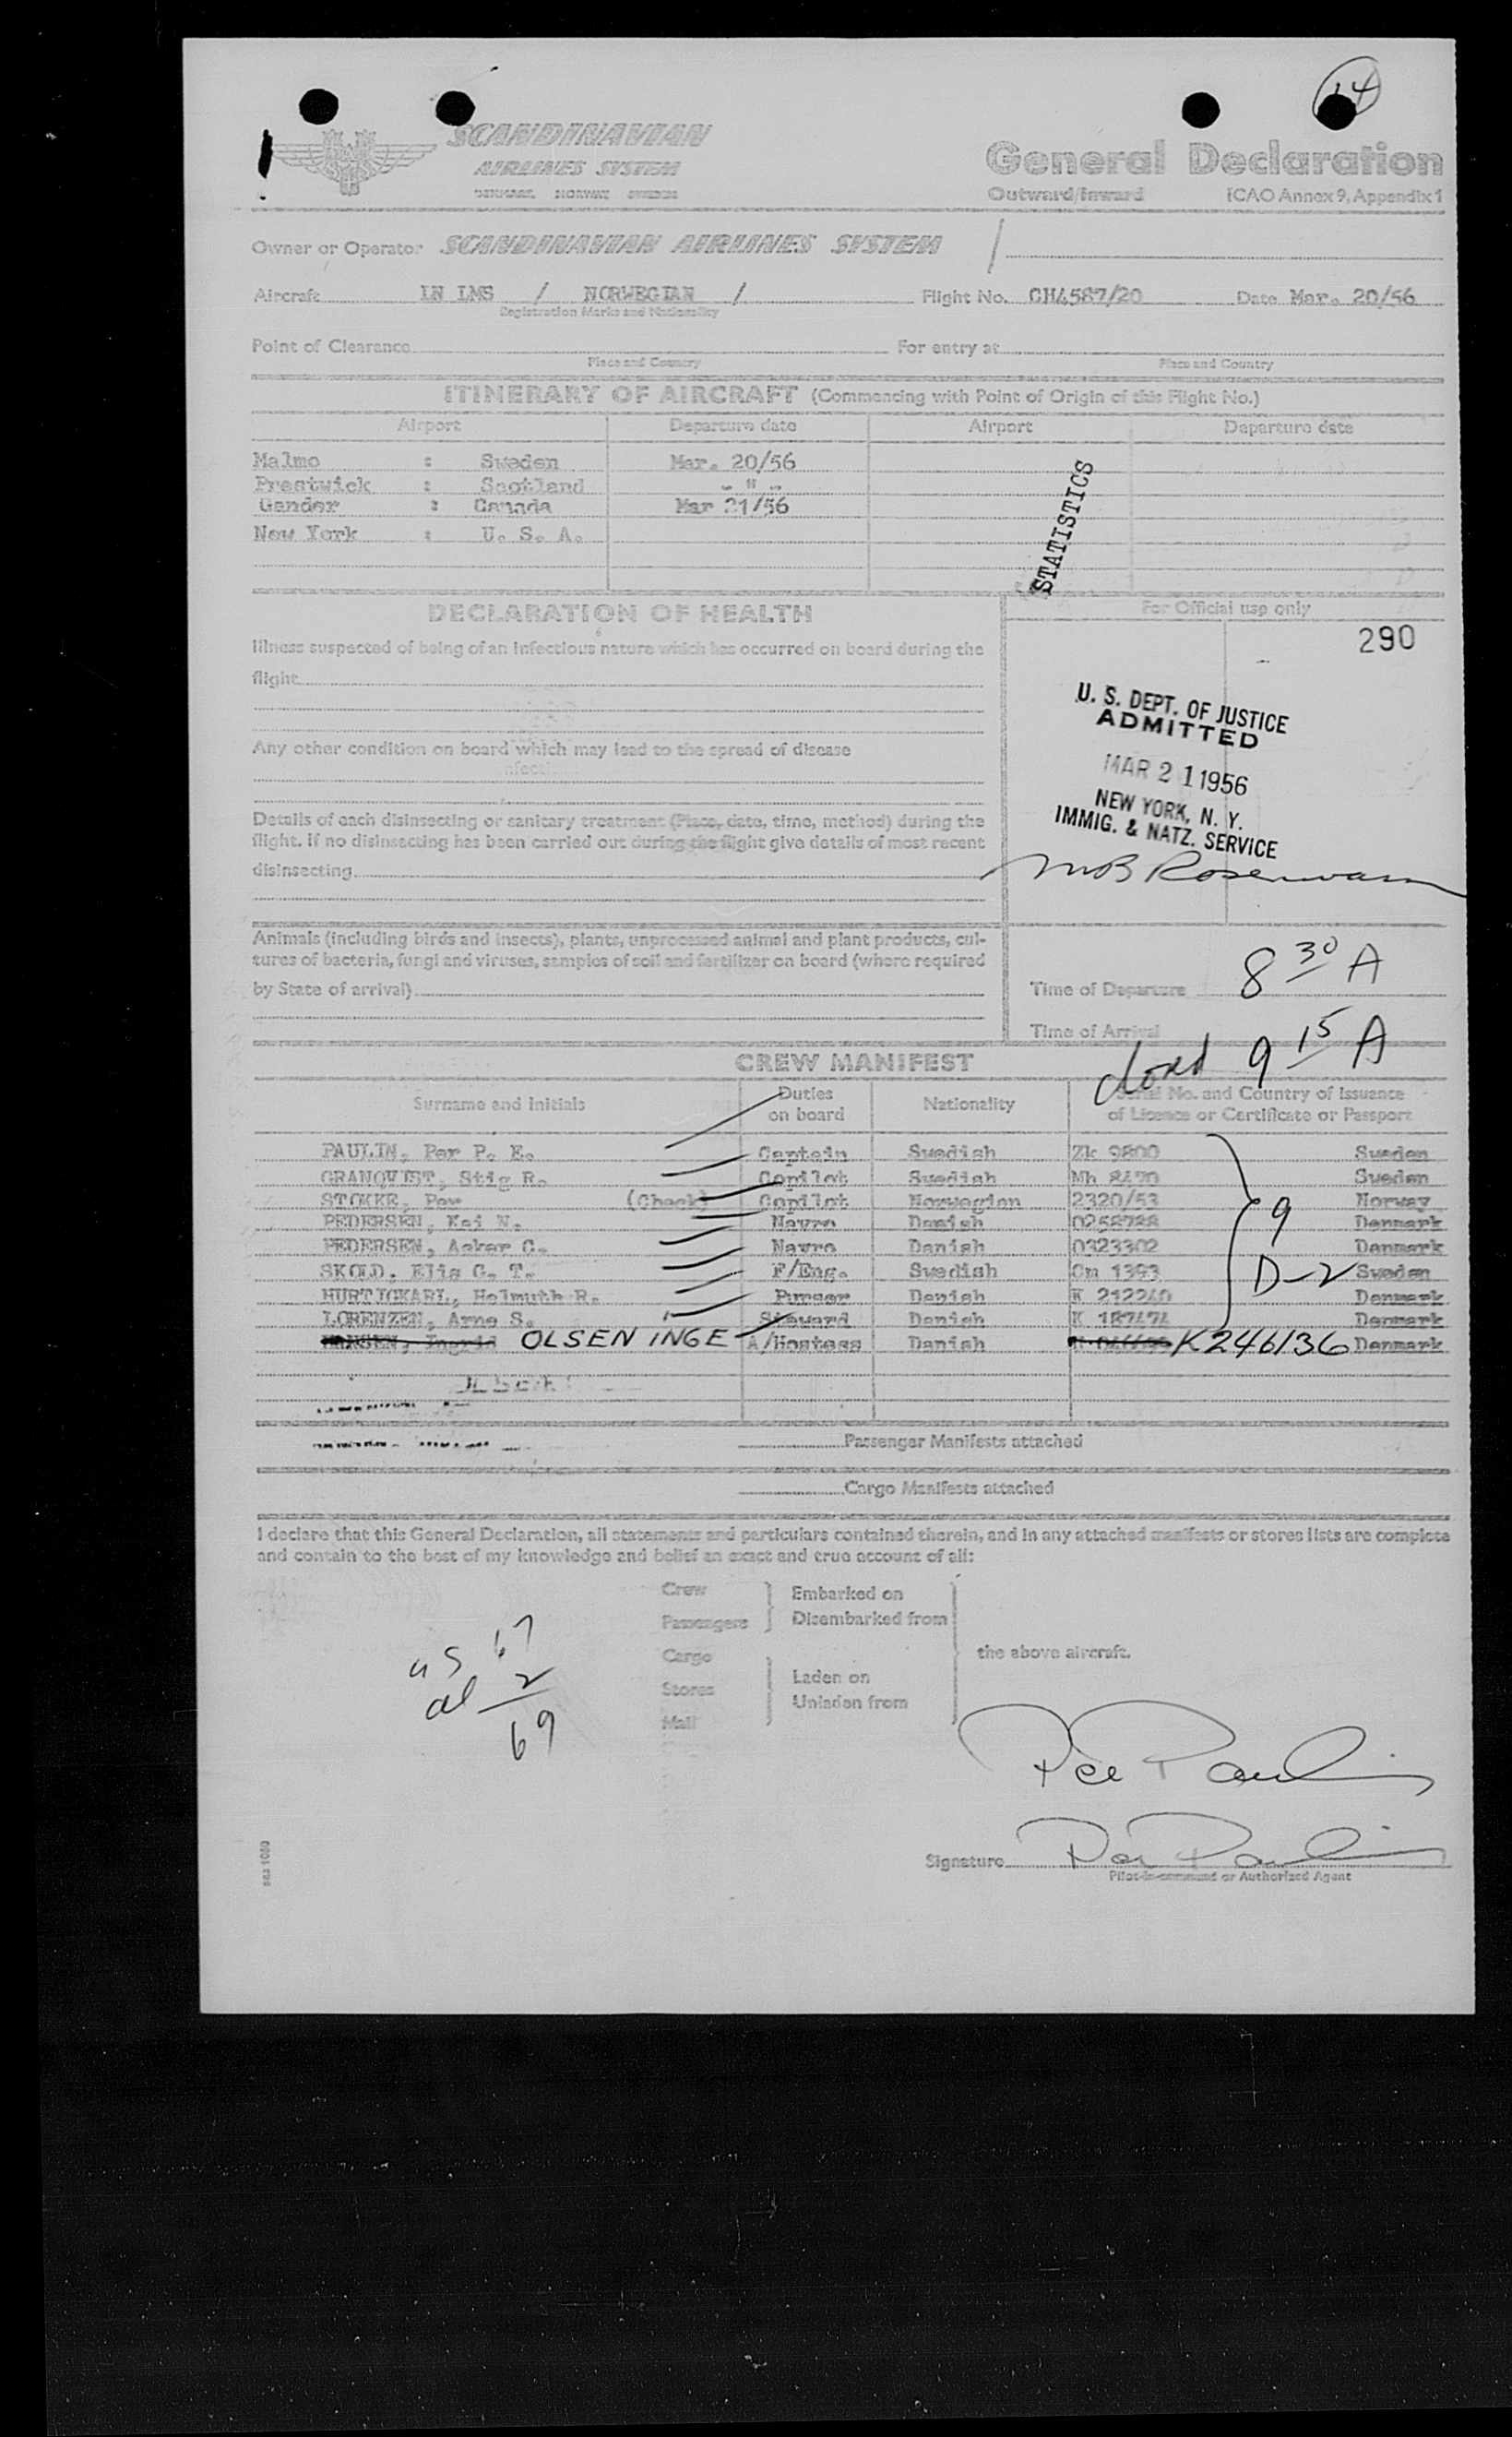 14
SCANDINAVIAN
AIRLINES SYSTEM
DENMARK NORWAY SWEDEN
General Declaration
Outward/Inward ICAO Annex 9, Appendix 1
Owner or Operator SCANDINAVIAN AIRLINES SYSTEM /
Aircraft LN LMS / NORWEGIAN / Flight No. CH4587/20 Date Mar. 20/56
Registration Marks and Nationality
Point of Clearance For entry at
Place and Country Place and Country
ITINERARY OF AIRCRAFT (Commencing with Point of Origin of this Flight No.)
Airport Departure date Airport Departure date
Malmo : Sweden Mar. 20/56
Prestwick : Scotland - " -
Gander : Canada Mar 21/56
New York : U. S. A.
STATISTICS
DECLARATION OF HEALTH
For Official use only
290
Illness suspected of being of an infectious nature which has occurred on board during the
flight
Any other condition on board which may lead to the spread of disease
Details of each disinsecting or sanitary treatment (Place, date, time, method) during the
flight. If no disinsecting has been carried out during the flight give details of most recent
disinsecting
U. S. DEPT. OF JUSTICE
ADMITTED
MAR 21 1956
NEW YORK, N. Y.
IMMIG. & NATZ. SERVICE
Animals (including birds and insects), plants, unprocessed animal and plant products, cul-
tures of bacteria, fungi and viruses, samples of soil and fertilizer on board (where required
by State of arrival)
Time of Departure 8 30 A
Time of Arrival 9 15 A
CREW MANIFEST
Surname and Initials Duties on board Nationality Serial No. and Country of Issuance
of Licence or Certificate or Passport
PAULIN, Per P. E. Captain Swedish Zk 9800 Sweden
GRANQVIST, Stig R. Copilot Swedish Mh 8470 Sweden
STOKER, Per (Check) Copilot Norwegian 2320/53 Norway
PEDERSEN, Kai N. Navro Danish 0258788 Denmark
PEDERSEN, Asker C. Navro Danish 0323302 Denmark
SKOLD, Elis G. T. F/Eng. Swedish Om 1393 Sweden
HURTIGKARL, Helmuth R. Purser Danish K 212240 Denmark
LORENZEN, Arne S. Steward Danish K 187474 Denmark
HANSEN, Ingrid OLSEN INGE A/Hostess Danish K246136 Denmark
9
D-2
Passenger Manifests attached
Cargo Manifests attached
I declare that this General Declaration, all statements and particulars contained therein, and in any attached manifests or stores lists are complete
and contain to the best of my knowledge and belief an exact and true account of all:
Crew Embarked on
Passengers Disembarked from
the above aircraft.
Cargo
Laden on
Stores
Unladen from
Mail
us 67
al 2
69
Per Paulin
Signature Per Paulin
Pilot-in-command or Authorized Agent
sas 1080